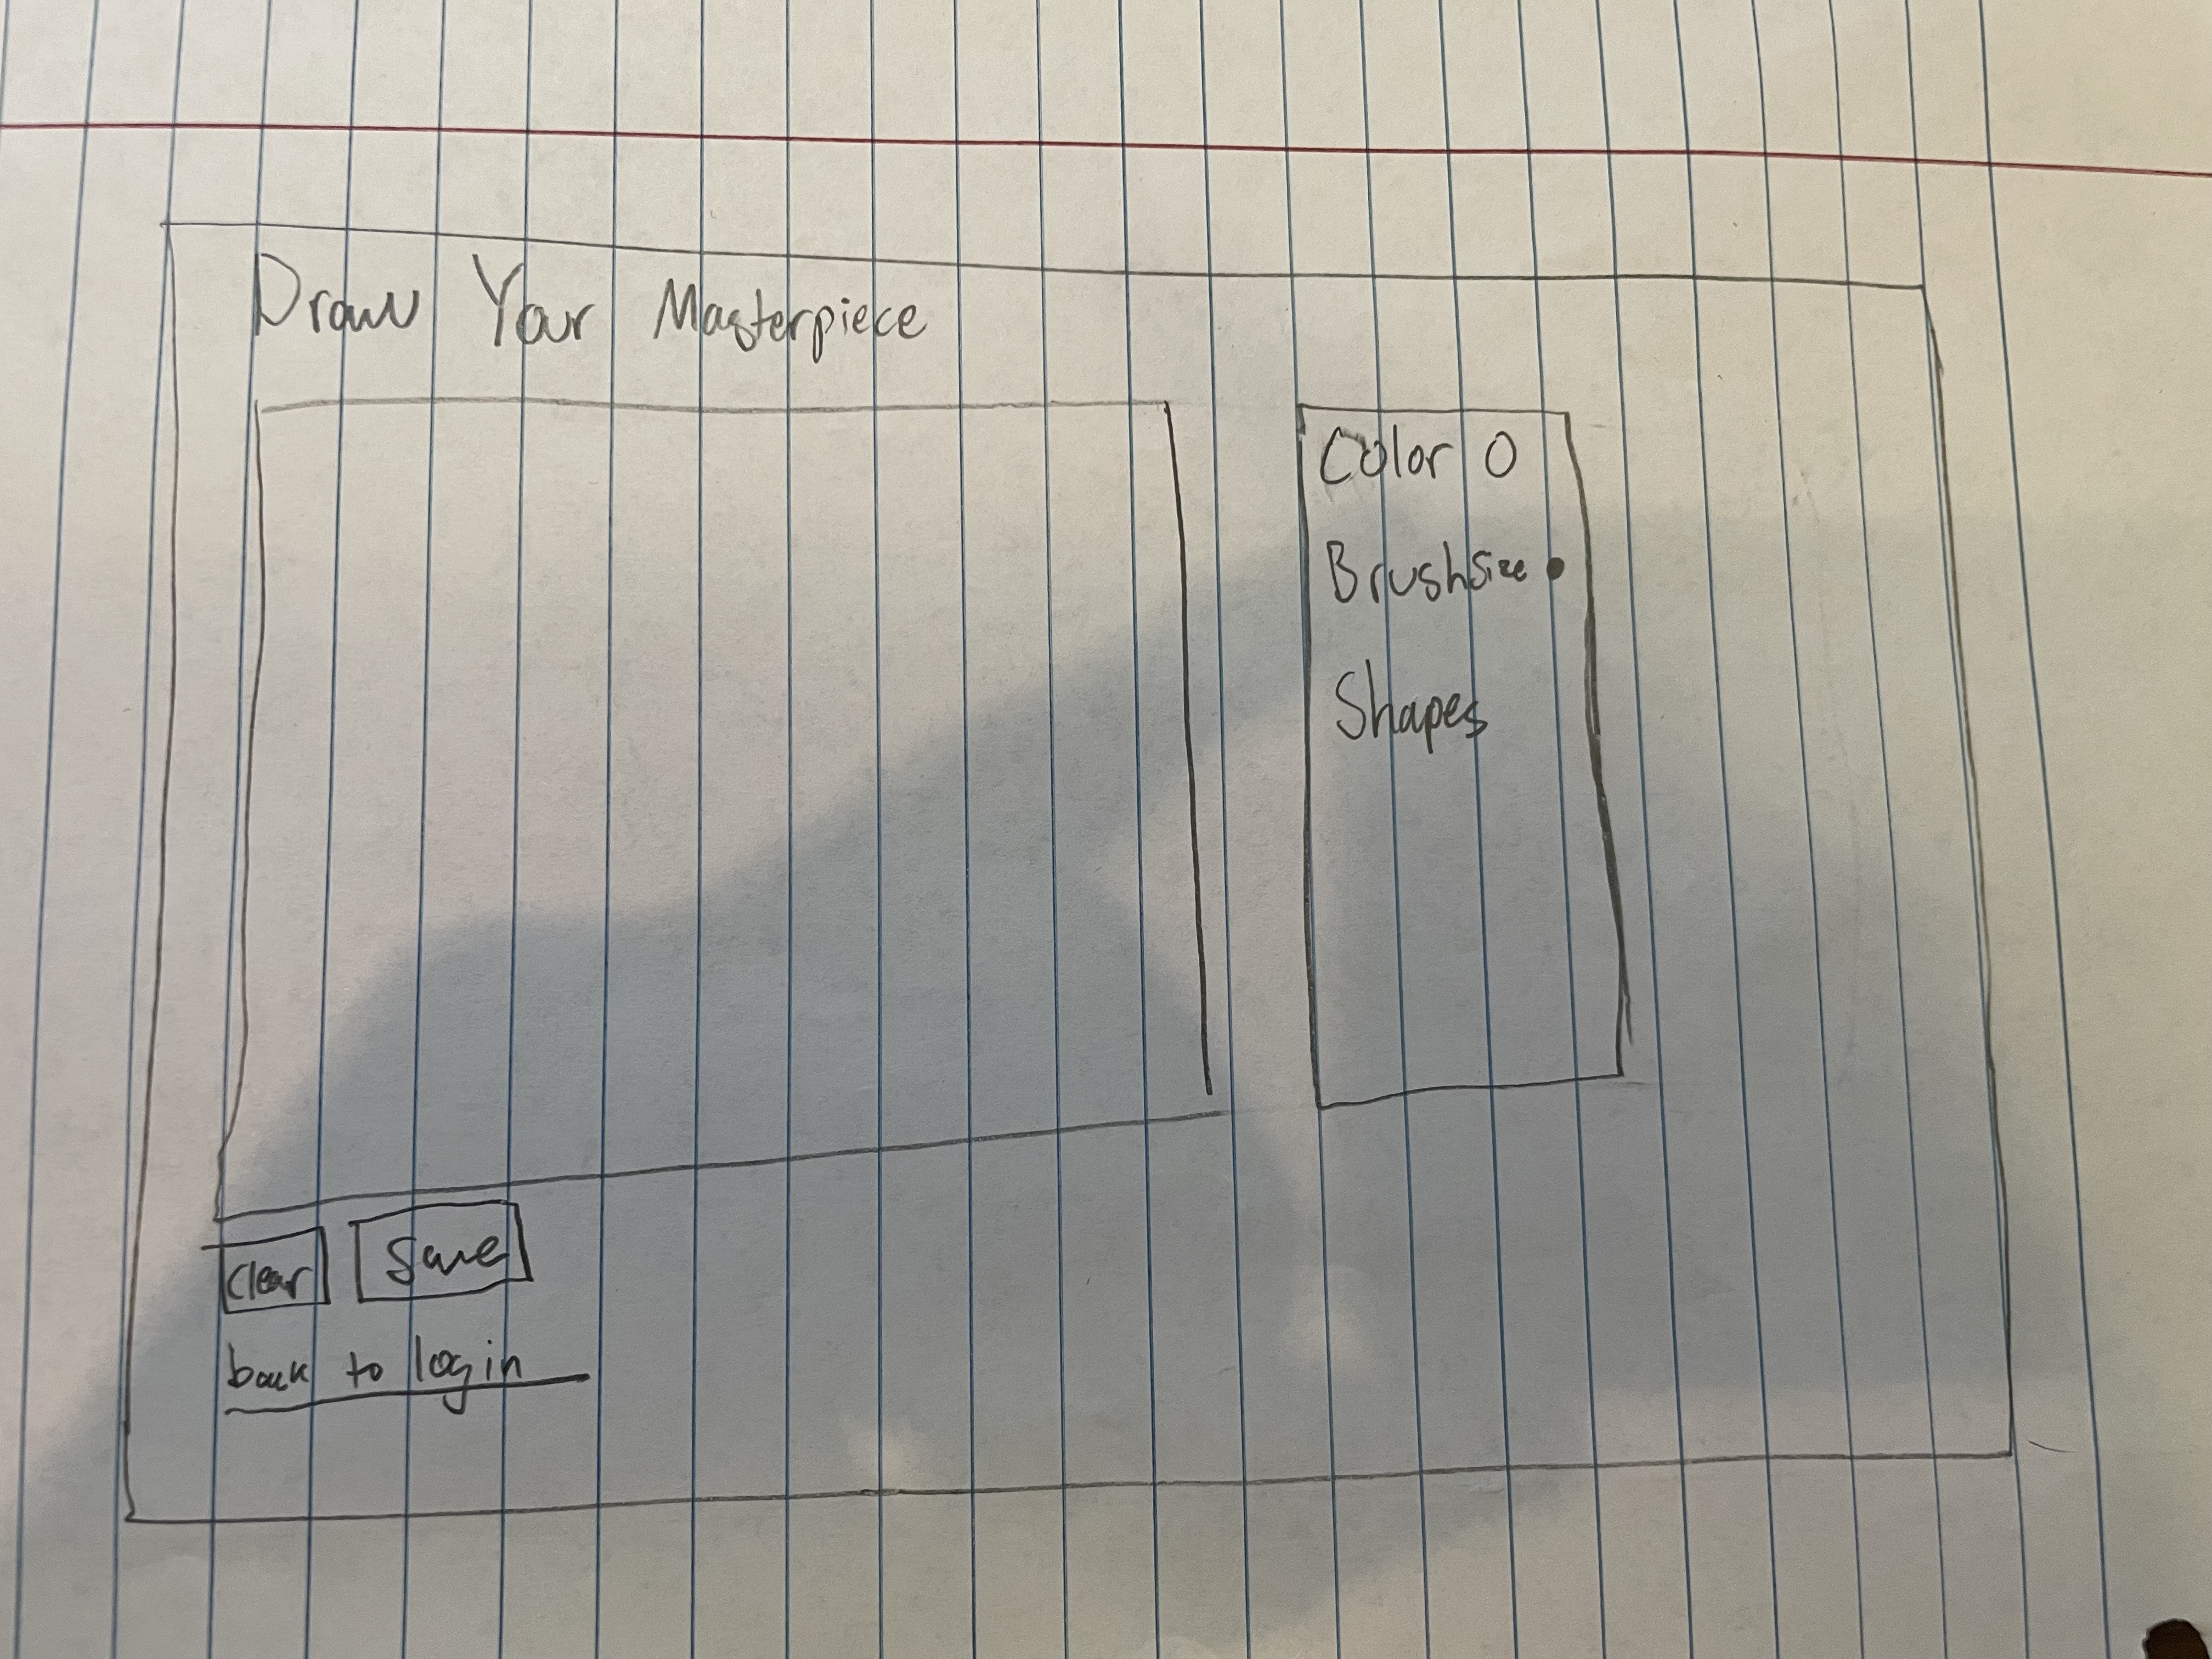 Draw Your Masterpiece
Color
Brushsize
Shapes
Clear Save
back to login